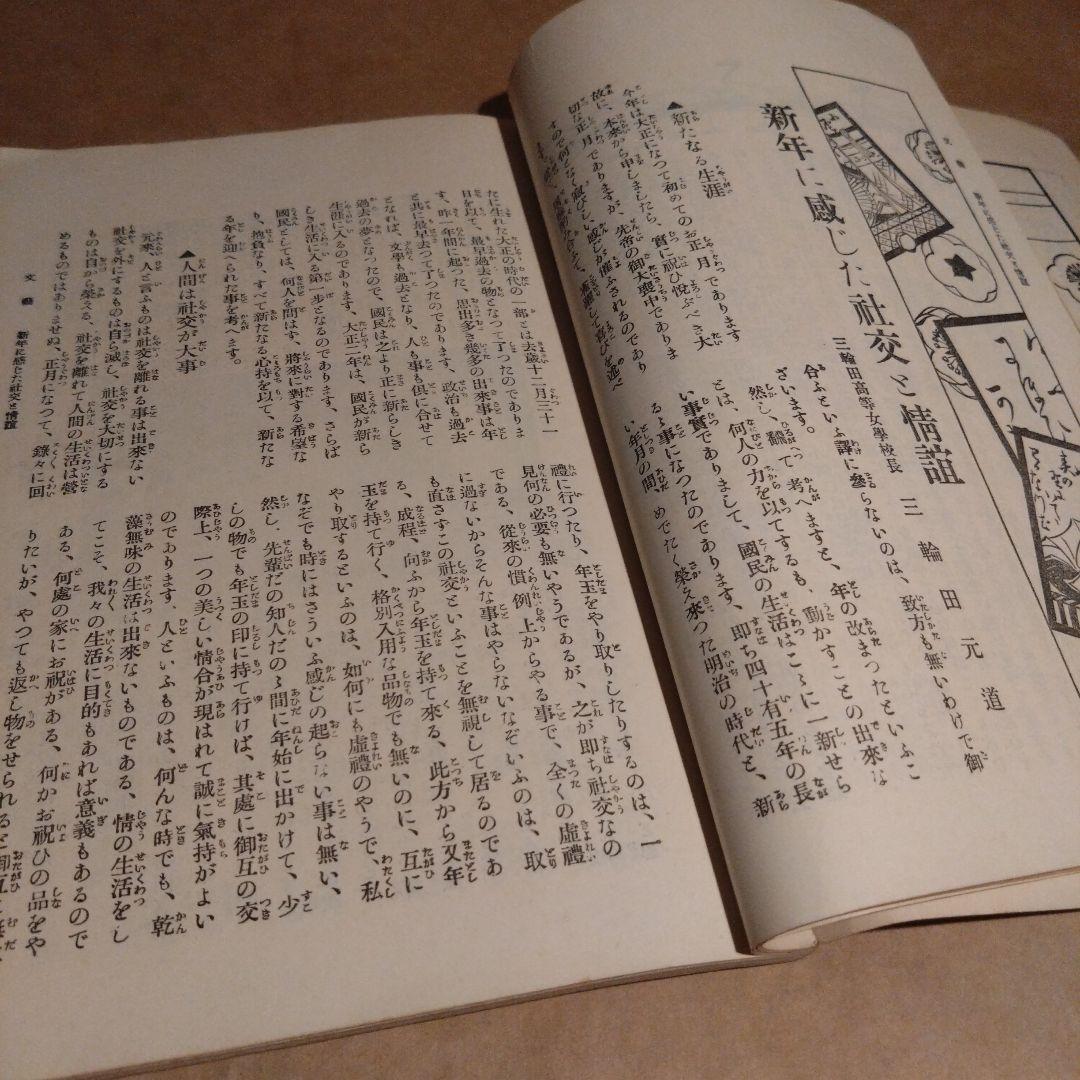 文藝　新年に感じた社交と情誼
新年に感じた社交と情誼
三輪田高等女學校長　三輪田元道
▲新たなる生涯
今年は大正になつて初めてのお正月であります
故に、本來から申しましたら、實に祝ひ悦ぶべき大
切な正月でありますが、先帝の御大喪中でありま
すので何となく寂びしい感じが催ふされるのであり
ます。
合ふといふ譯に參らないのは、致方も無いわけで御
ざいます。
然し、飜つて考へますと、年の改まつたといふこ
とは、何人の力を以てするも、動かすことの出來な
い事實でありまして、國民の生活はこゝに一新せら
るゝ事になつたのであります、即ち四十有五年の長
い年月の間、めでたく榮え來つた明治の時代と、新
たに生れた大正の時代の一部とは去歲十二月三十一
日を以て、最早過去の物となつて了つたのでありま
す、昨一年間に起つた、思出多き幾多の出來事は年
と共に最早去つて了つたのであります、政治も過去
となれば、文學も過去となり、人も事も倶に合せて
過去の夢となつたので、國民は之より正に新らしき
生涯に入るのであります、大正二年は、國民が新ら
しき生活に入る第一步となるのであります、さらば
國民としては、何人を問はず、將來に對する希望な
り、抱負なり、すべて新たなる心持を以て、新たな
る年を迎へられた事を考へます。
▲人間は社交が大事
元來、人と言ふものは社交を離れる事は出來ない
社交を外にするものは自ら滅し、社交を大切にする
ものは自から榮える、社交を離れて人間の生活は營
めるものではありませぬ、正月になつて、錄々に回
禮に行つたり、年玉をやり取りしたりするのは、一
見何の必要も無いやうであるが、之が即ち社交なの
である、從來の慣例上からやる事で、全くの虛禮
に過ないからそんな事はやらないなぞいふのは、取
も直さずこの社交といふことを無視して居るのであ
る、成程、向ふから年玉を持て來る、此方から又年
玉を持て行く、格別入用な品物でも無いのに、互に
やり取するといふのは、如何にも虛禮のやうで、私
なぞでも時にはさういふ感じの起らない事は無い、
然し、先輩だの知人だのゝ間に年始に出かけて、少
しの物でも年玉の印に持て行けば、其處に御互の交
際上、一つの美しい情合が現はれて誠に氣持がよい
のであります、人といふものは、何んな時でも、乾
藻無味の生活は出來ないものである、情の生活をし
てこそ、我々の生活に目的もあれば意義もあるので
ある、何處の家にお祝がある、何かお祝ひの品をや
りたいが、やつても返し物をせられると御互に
文藝　新年に感じた社交と情誼